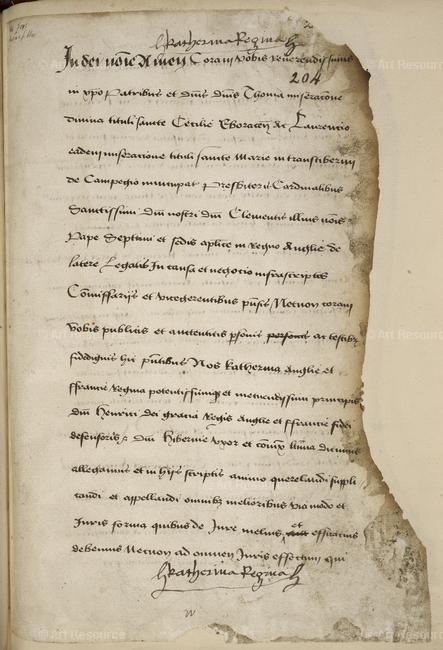 Katherina Regina
In dei nōie Amen Coram vobis reverendissimis
204
in xpo Patribus et dnis dnis Thoma miseracōne
divina tituli sancte Cecilie Eboraceñ Ac Laurencio
eadem miseracione tituli sancte Marie in transtiberim
de Campegio nuncupat Presbiteris Cardinalibus
Sanctissimi dni nostri dni Clementis illius nōis
Pape Septimi et sedis aplice in regno Anglie de
latere Legatis In causa et negocio infrascriptis
Comissarijs et vicegerentibus Necnon coram
vobis publicis et autenticis psonis personis ac testibz
fidedignis hic pntibus Nos Katherina Anglie et
ffrancie Regina potentissimi et metuendissimi principis
dni Henrici dei gracia Regis Anglie et ffrancie fidei
defensoris dni Hibernie Vxor et dicimus
allegamus et in hijs scriptis animo querelandi suppli
candi et appellandi omnibz melioribus via modo et
Iuris forma quibus de Iure melius et efficacius
debemus Necnon ad omnem Iuris effectum qui
Katherina Regina
© Art Resource
© Art Resource
© Art Resource
© Art Resource
© Art Resource